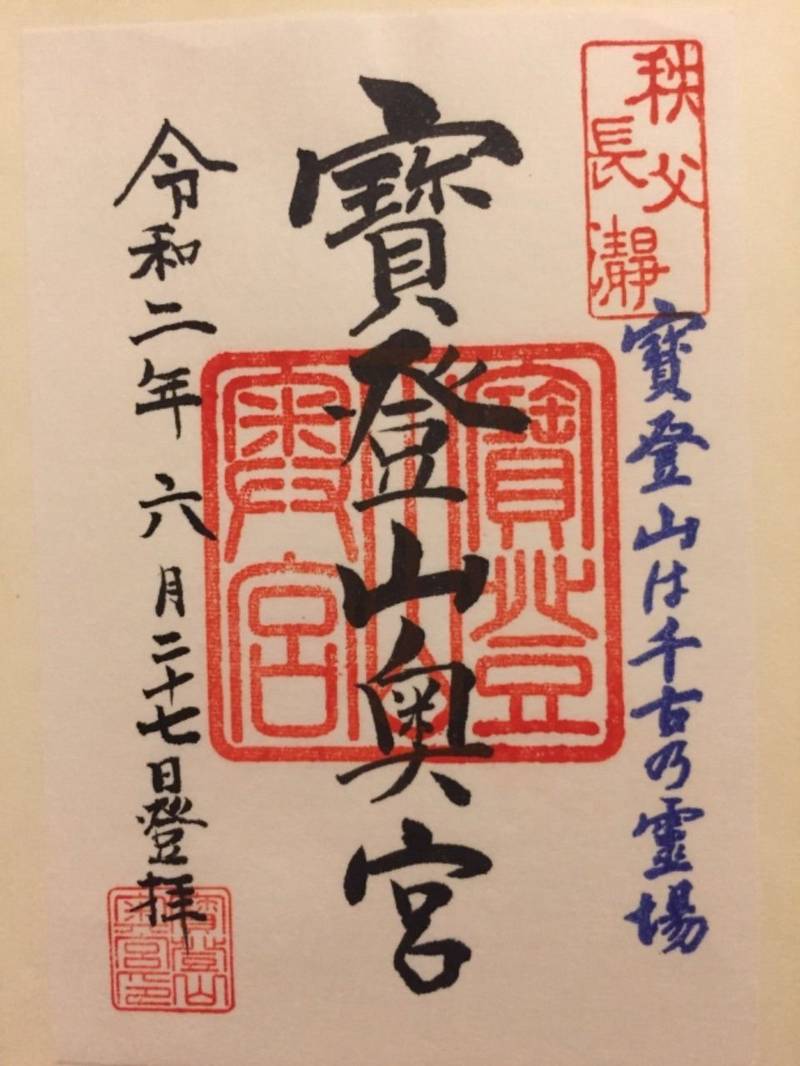 秩父
長瀞
寶登山は千古乃霊場
寶登山奥宮
寶登山奥宮
令和二年六月二十七日登拝
寶登山
奥宮印